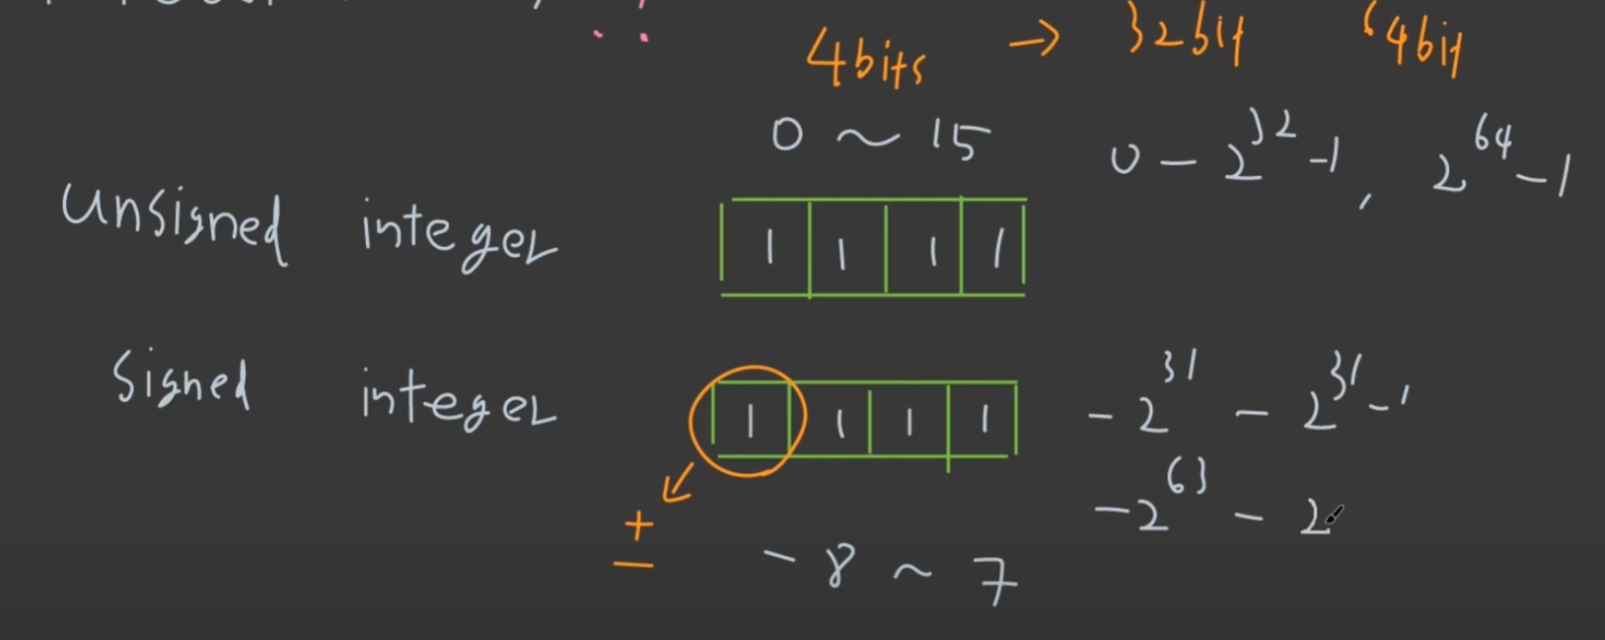 4bits → 32bit 64bit
0 ~ 15 0 - 2^32 -1, 2^64 -1
Unsigned integer 1 1 1 1
Signed integer 1 1 1 1 -2^31 - 2^31 -1
-2^63 - 2
+
-
-8 ~ 7